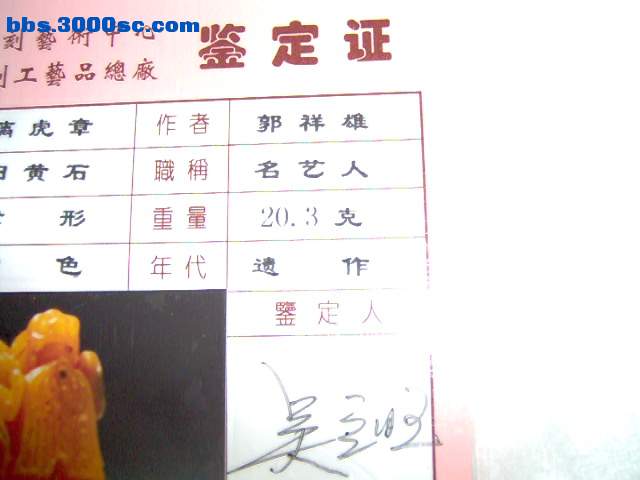 bbs.3000sc.com
刻藝術中心
鉴定证
刂工藝品總廠
螭虎章 作者 郭祥雄
田黄石 職稱 名艺人
形 重量 20.3克
色 年代 遗作
鑒定人